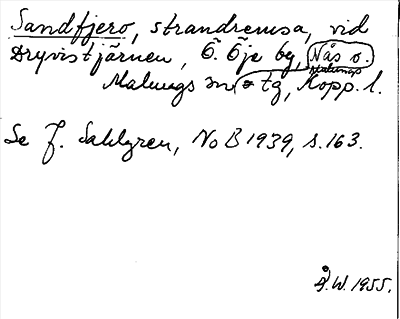 Sandfjero, strandremsa, vid
Dryvistjärnen, Ö. Öje by, Nås o.
Malungs
Malungs sn o tg, Kopp. l.
Se J. Sahlgren, NoB 1939, s. 163.
Å.W. 1955.